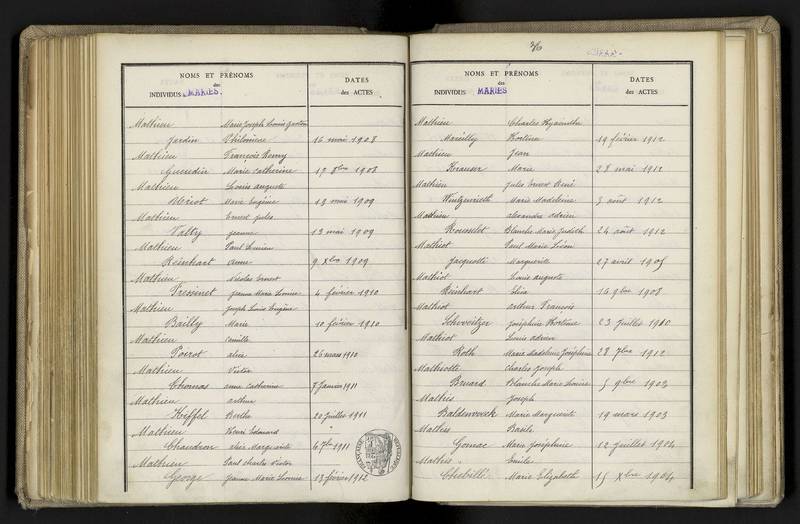 NOMS ET PRÉNOMS
des
INDIVIDUS MARIÉS.
DATES
des ACTES
Mathieu Marie Joseph Louis Gaston
Jardin Philomène 16 mai 1908
Mathieu François Remy
Marie Catherine 17 8bre 1908
Mathieu Louis Auguste
Marie Eugénie 19 mai 1909
Mathieu Ernest Jules
Valty Jeanne 13 mai 1909
Mathieu Paul Lucien
Reinhart Anne 9 Xbre 1909
Mathieu Nicolas Ernest
Pressenet Jeanne Marie Louise 4 février 1910
Mathieu Joseph Louis Eugène
Bailly Marie 10 février 1910
Mathieu Camille
Poirot Alice 26 mars 1910
Mathieu Victor
Thomas Anne Catherine 7 Janvier 1911
Mathieu Arthur
Kiffel Berthe 20 Juillet 1911
Mathieu Henri Edouard
Chaudron Alice Marguerite 4 7bre 1911
Mathieu Paul Charles Victor
George Jeanne Marie Leonie 13 février 1912
26
NOMS ET PRÉNOMS
des
INDIVIDUS MARIÉS
DATES
des ACTES
Mathieu Charles Hyacinthe
Marcilly Hortense 19 février 1912
Mathieu Jean
Krauser Marie 28 mai 1912
Mathieu Jules Ernest René
Wintzenrieth Marie Madeleine 3 août 1912
Mathieu Alexandre Adrien
Rousselot Blanche Marie Judith 24 août 1912
Mathiot Paul Marie Léon
Jacquotte Marguerite 27 avril 1905
Mathiot Louis Auguste
Reinhart Elisa 16 9bre 1908
Mathiot Arthur François
Schweitzer Joséphine Hortense 23 Juillet 1910
Mathiot Louis Adrien
Roth Marie Madeleine Joséphine 28 7bre 1912
Mathiotte Charles Joseph
Bruard Blanche Marie Louise 5 9bre 1904
Mathis Joseph
Baldenweck Marie Marguerite 19 mars 1903
Mathis Basile
Gomac Marie Joséphine 12 Juillet 1904
Mathis Emile
Marie Elizabeth 15 Xbre 1904